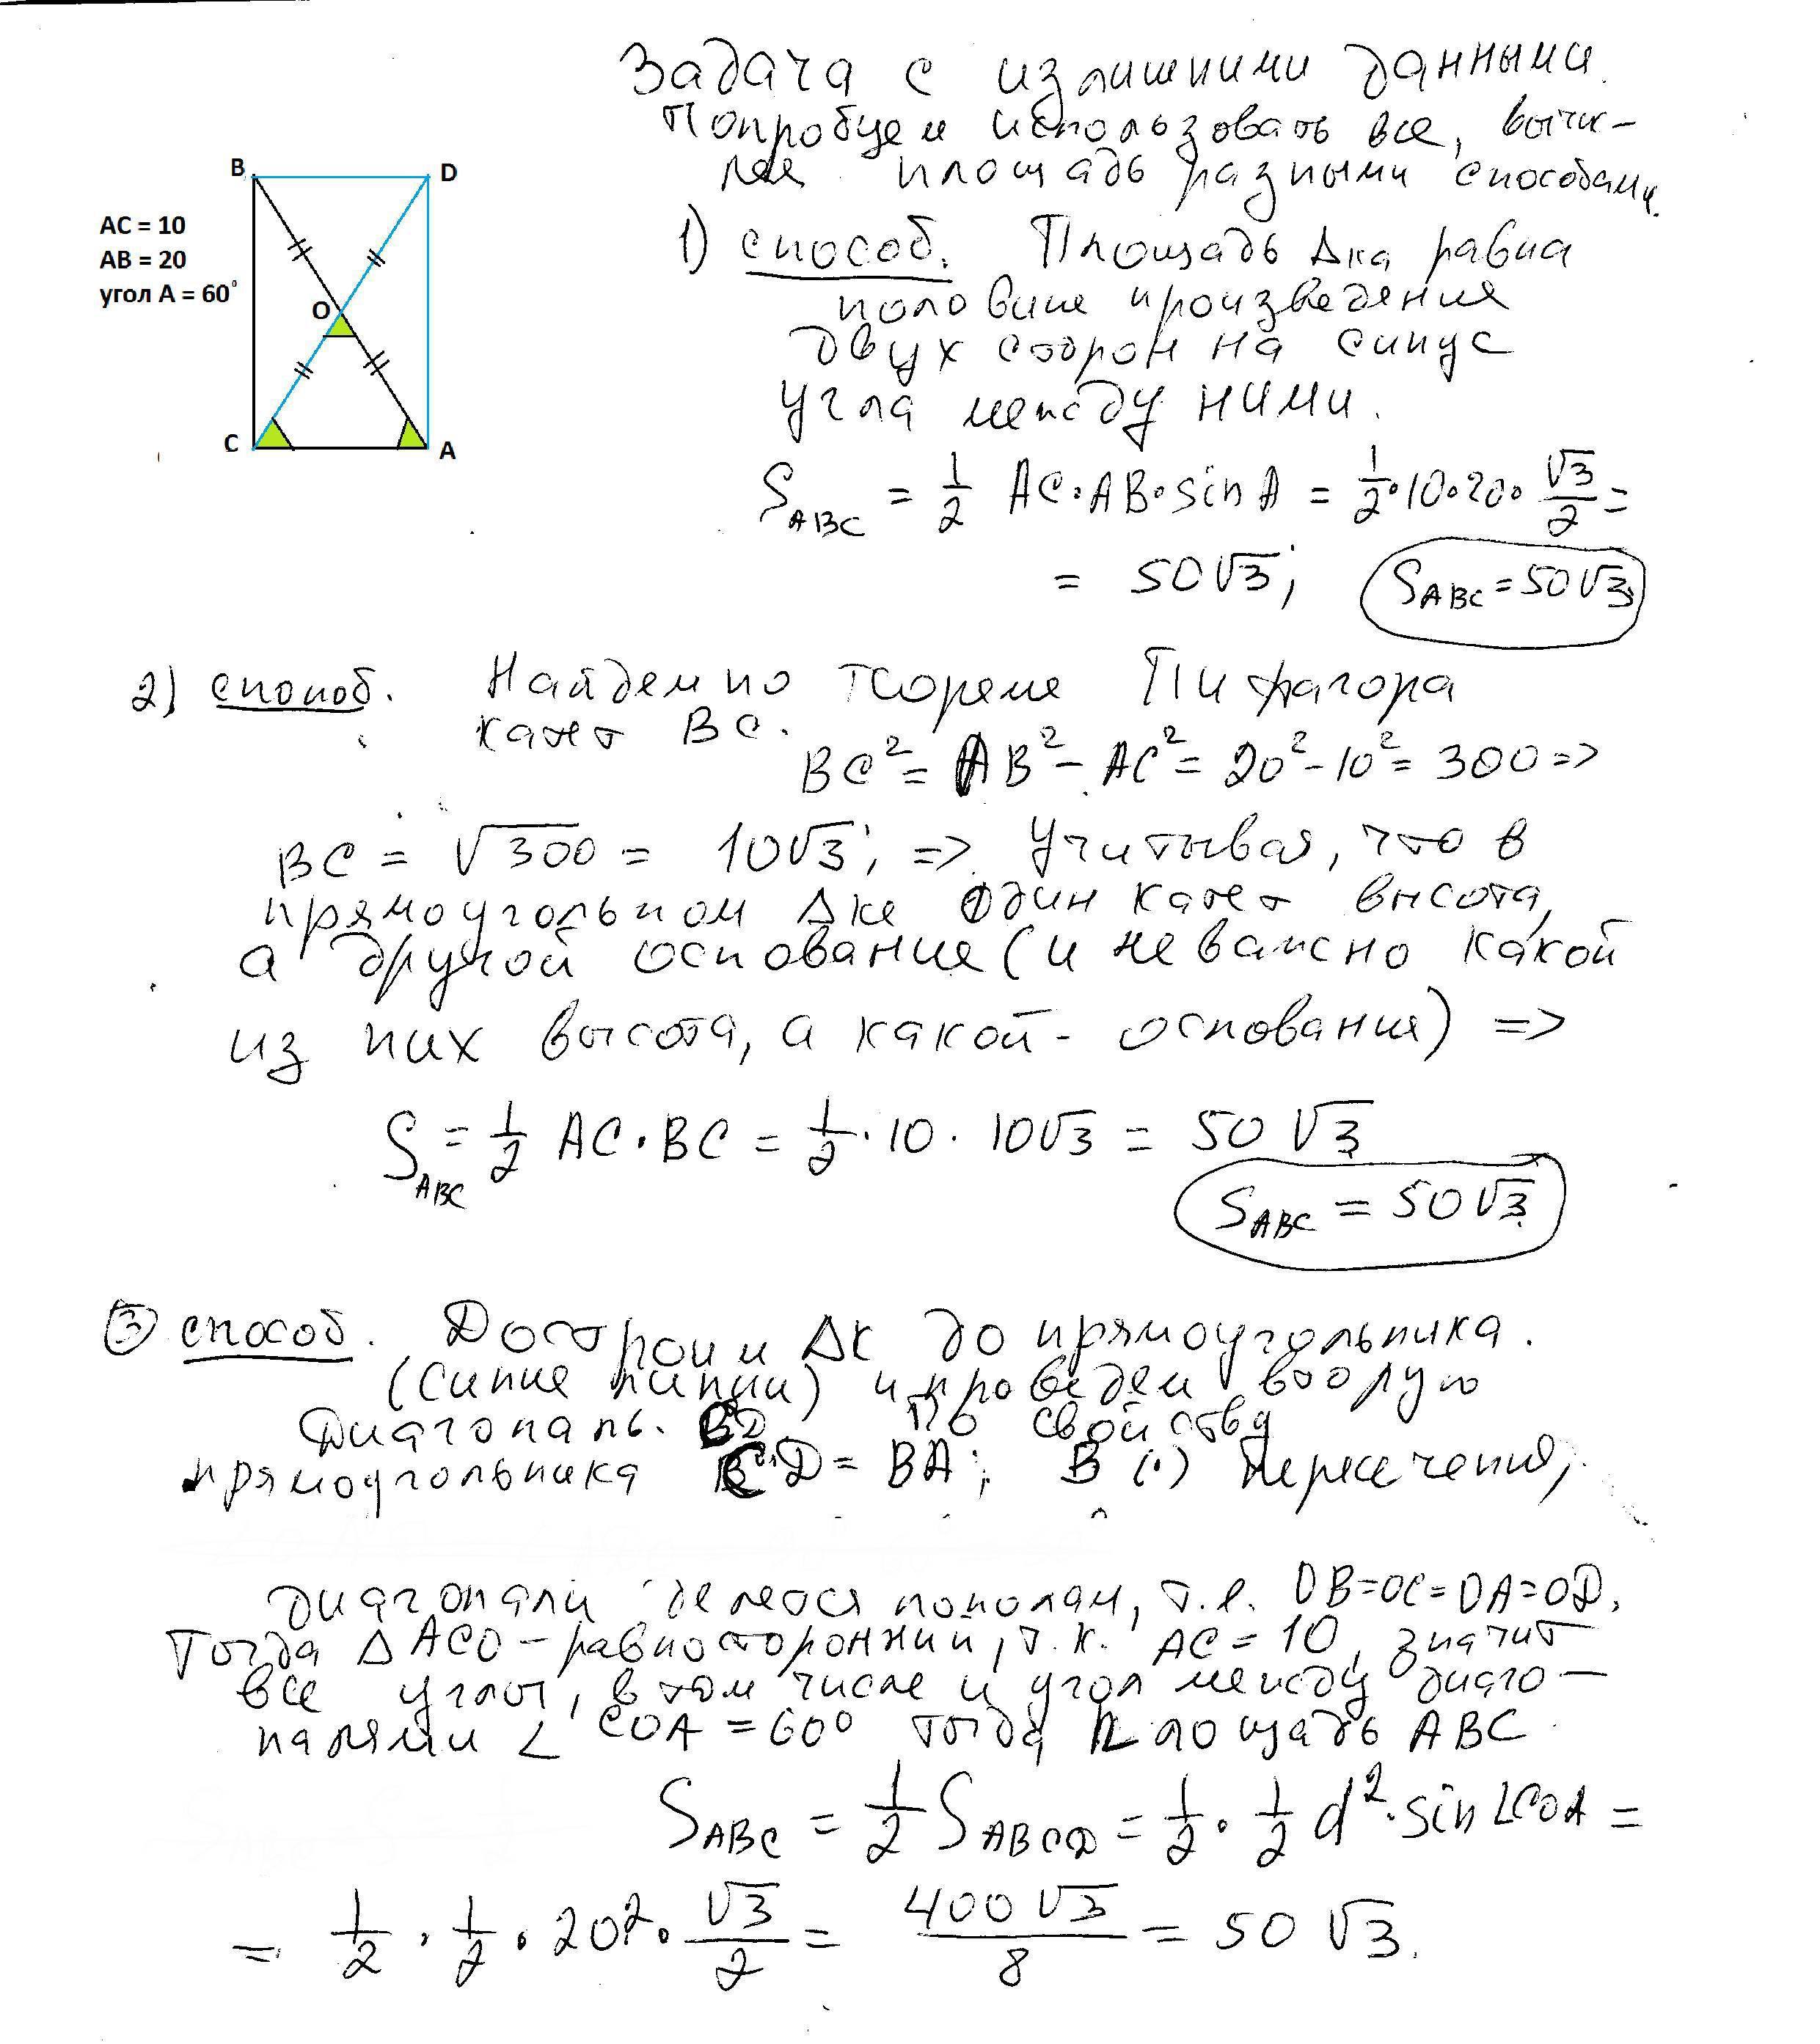 Задача с излишними данными.
Попробуем использовать все, вычис-
ляя площадь разными способами.
B
D
AC = 10
AB = 20
угол A = 60°
O
C
A
1) способ. Площадь Δка равна
половине произведения
двух сторон на синус
угла между ними.
S_ABC = 1/2 AC·AB·sin A = 1/2·10·20·√3/2 =
= 50√3; S_ABC = 50√3
2) способ. Найдем по теореме Пифагора
катет BC.
BC² = AB² - AC² = 20² - 10² = 300 =>
BC = √300 = 10√3; => Учитывая, что в
прямоугольном Δке один катет высота,
а другой основание (и неважно какой
из них высота, а какой - основания) =>
S_ABC = 1/2 AC·BC = 1/2·10·10√3 = 50√3
S_ABC = 50√3
3 способ. Достроим Δк до прямоугольника.
(Синие линии) и проведем вторую
Диагональ. CD По свойству
прямоугольника CD = BA; В (·) пересечения,
диагонали делятся пополам, т.е. OB=OC=OA=OD.
Тогда Δ ACO - равносторонний, т.к. AC = 10, значит
все углы, в том числе и угол между диаго-
налями ∠ COA = 60° тогда площадь ABC
S_ABC = 1/2 S_ABCD = 1/2 · 1/2 d²·sin∠COA =
= 1/2 · 1/2 · 20² · √3/2 = 400√3/8 = 50√3.